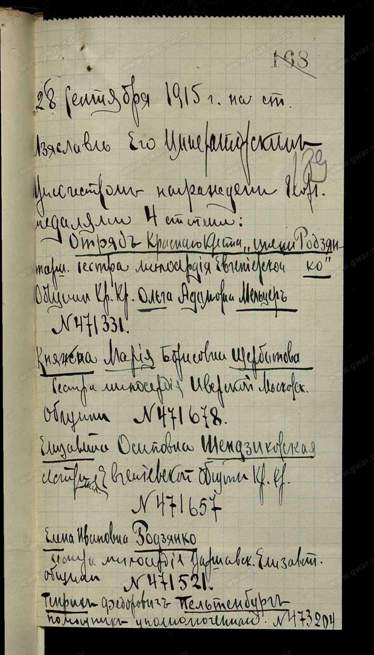 168
28 Сентября 1915 г. на ст.
Изяславль Его Императорским
139
Величеством награждены Георг.
медалями 4 степени:
Отрядъ Красного Креста „имени Родзян
ко"
сестра милосердія Евгеніевской
Общины Кр. Кр. Ольга Адамовна Мельцеръ
N 471331.
Княжна Марія Борисовна Щербатова
Сестра милосердія Иверской Московск.
общины N 471678.
Елизавета Осиповна Шендзиковская
сестра Евгеніевской общины Кр. Кр.
N 471657
Елена Ивановна Родзянко
сестра милосердія Варшавск. Елизавет.
общины N 471521.
Генрихъ Федоровичъ Пельтенбургъ
помощникъ уполномоченнаго. N 473204